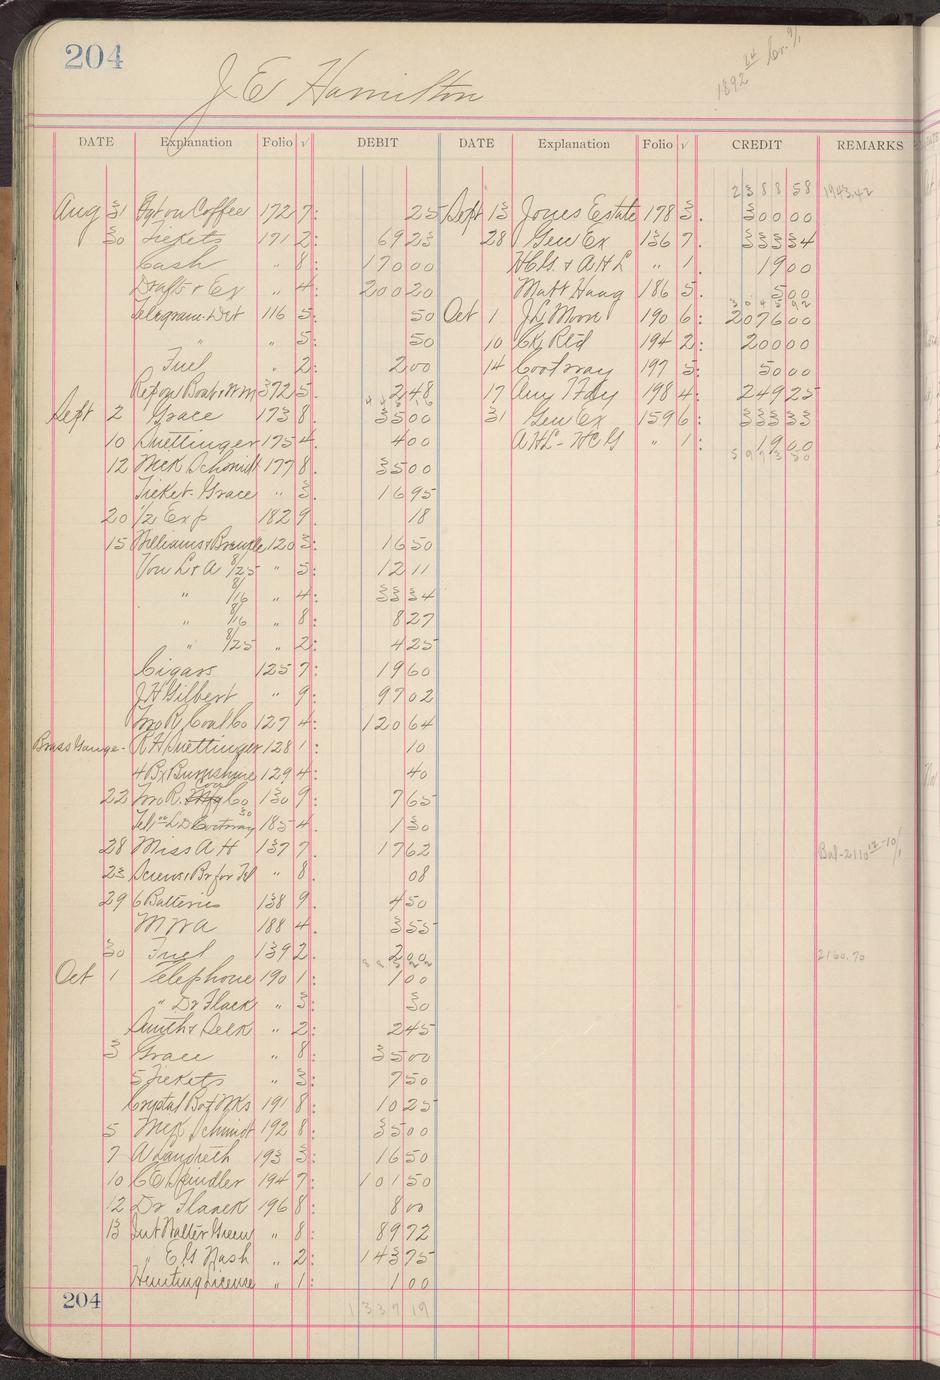 204
J E Hamilton
DATE Explanation Folio √ DEBIT DATE Explanation Folio √ CREDIT REMARKS
2388 58 1943.42
Aug 31 Frt on Coffee 172 7: 25 Sept 13 Jones Estate 178 3. 300 00
30 Tickets 171 2: 69 23 28 Gen Ex 136 7. 333 34
Cash " 8: 170 00 HCG. & AHL " 1. 19 00
Drafts & Ex " 4: 200 20 Matt Haag 186 5. 5 00
Telegram-Wit 116 5: 50 Oct 1 J L Moon 190 6: 2076 00
" " 5: 50 10 Ck Retd 194 2: 200 00
Fuel " 2: 2 00 14 Cootway 197 5: 50 00
Rep on Boat 372 5. 2 48 17 Aug 17 dy 198 4: 249 25
Sept 2 Grace 173 8. 35 00 31 Gen Ex 159 6: 333 33
10 Duettinger 175 4. 4 00 AHL - HCG " 1: 19 00
12 Meck Schmidt 177 8. 35 00
Ticket-Grace " 3. 16 95
20 1/2 Exp 182 9. 18
15 Williams & 120 3: 16 50
Von L & A 8/25 " 5: 12 11
" 8/16 " 4: 33 34
" 8/16 " 8: 8 27
" 8/25 " 2: 4 25
Cigars 125 7: 19 60
J H Gilbert " 9: 97 02
Two R. Coal Co 127 4: 120 64
Brass Gauge- R H Duettinger 128 1: 10
4 Bx Burnshine 129 4: 40
22 Two R. Coal Co 130 9: 7 65
185 4. 1 30
28 Miss A H 137 7. 17 62
23 Screws & Br for Tel " 8. 08
29 6 Batteries 138 9. 4 50
M W A 188 4. 3 55
30 Fuel 139 2. 2 00 2160.70
Oct 1 Telephone 190 1: 1 00
" Dr Flack " 3: 30
Smith & Selk " 2: 2 45
3 Grace " 8: 35 00
5 Tickets " 3: 7 50
Crystal Bot Wks 191 8: 10 25
5 Meck Schmidt 192 8: 35 00
7 A Landreth 193 3: 16 50
10 C E Spindler 194 7: 101 50
12 Dr Flack 196 8: 8 00
13 Int Walter Green " 8: 89 72
" E G Nash " 2: 143 75
Hunting License " 1: 1 00
204 1337 19